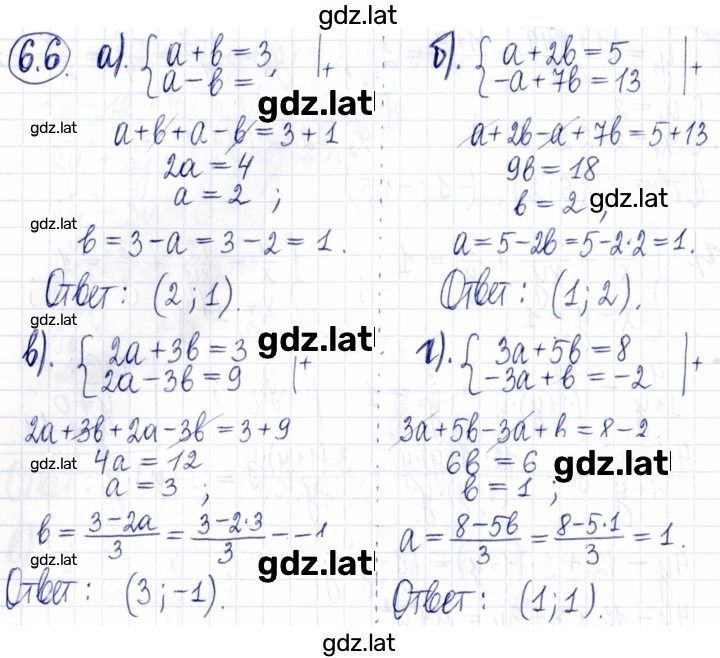 gdz.lat
6.6. а). { a + b = 3, | +
a - b =
gdz.lat
gdz.lat
a + b + a - b = 3 + 1
2a = 4
a = 2 ;
gdz.lat
b = 3 - a = 3 - 2 = 1.
Ответ: (2; 1).
б). { a + 2b = 5 | +
-a + 7b = 13
a + 2b - a + 7b = 5 + 13
9b = 18
b = 2,
gdz.lat
a = 5 - 2b = 5 - 2·2 = 1.
Ответ: (1; 2).
gdz.lat
в). { 2a + 3b = 3 | +
2a - 3b = 9
gdz.lat
2a + 3b + 2a - 3b = 3 + 9
4a = 12
gdz.lat
a = 3 ;
b = (3 - 2a)/3 = (3 - 2·3)/3 = -1
gdz.lat
gdz.lat
Ответ: (3; -1).
г). { 3a + 5b = 8 | +
-3a + b = -2
3a + 5b - 3a + b = 8 - 2
6b = 6
gdz.lat
b = 1 ;
a = (8 - 5b)/3 = (8 - 5·1)/3 = 1.
Ответ: (1; 1).
gdz.lat